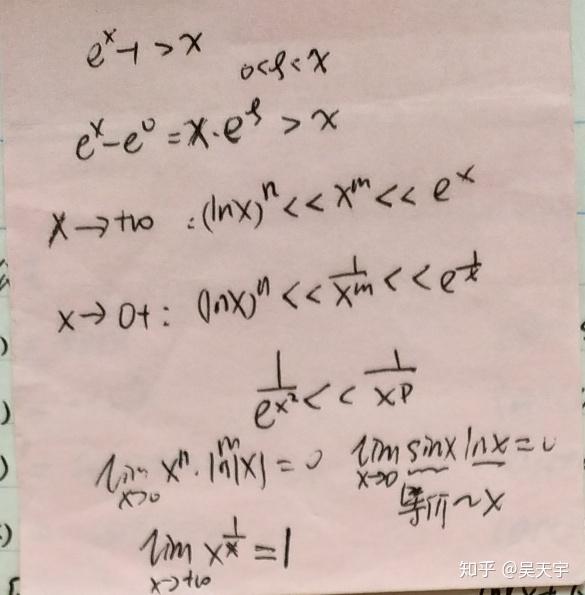 eˣ-1 > x
0<ξ<x
eˣ-e⁰ = x·e^ξ > x
x→+∞ : (lnx)ⁿ << xᵐ << eˣ
x→0+ : (lnx)ⁿ << 1/xᵐ << e^(1/x)
1/e^(x²) << 1/x^p
lim x→0 xⁿ·lnᵐ|x| = 0
lim x→0 sinx lnx = 0
等价~x
lim x→+∞ x^(1/x) = 1
知乎 @吴天宇